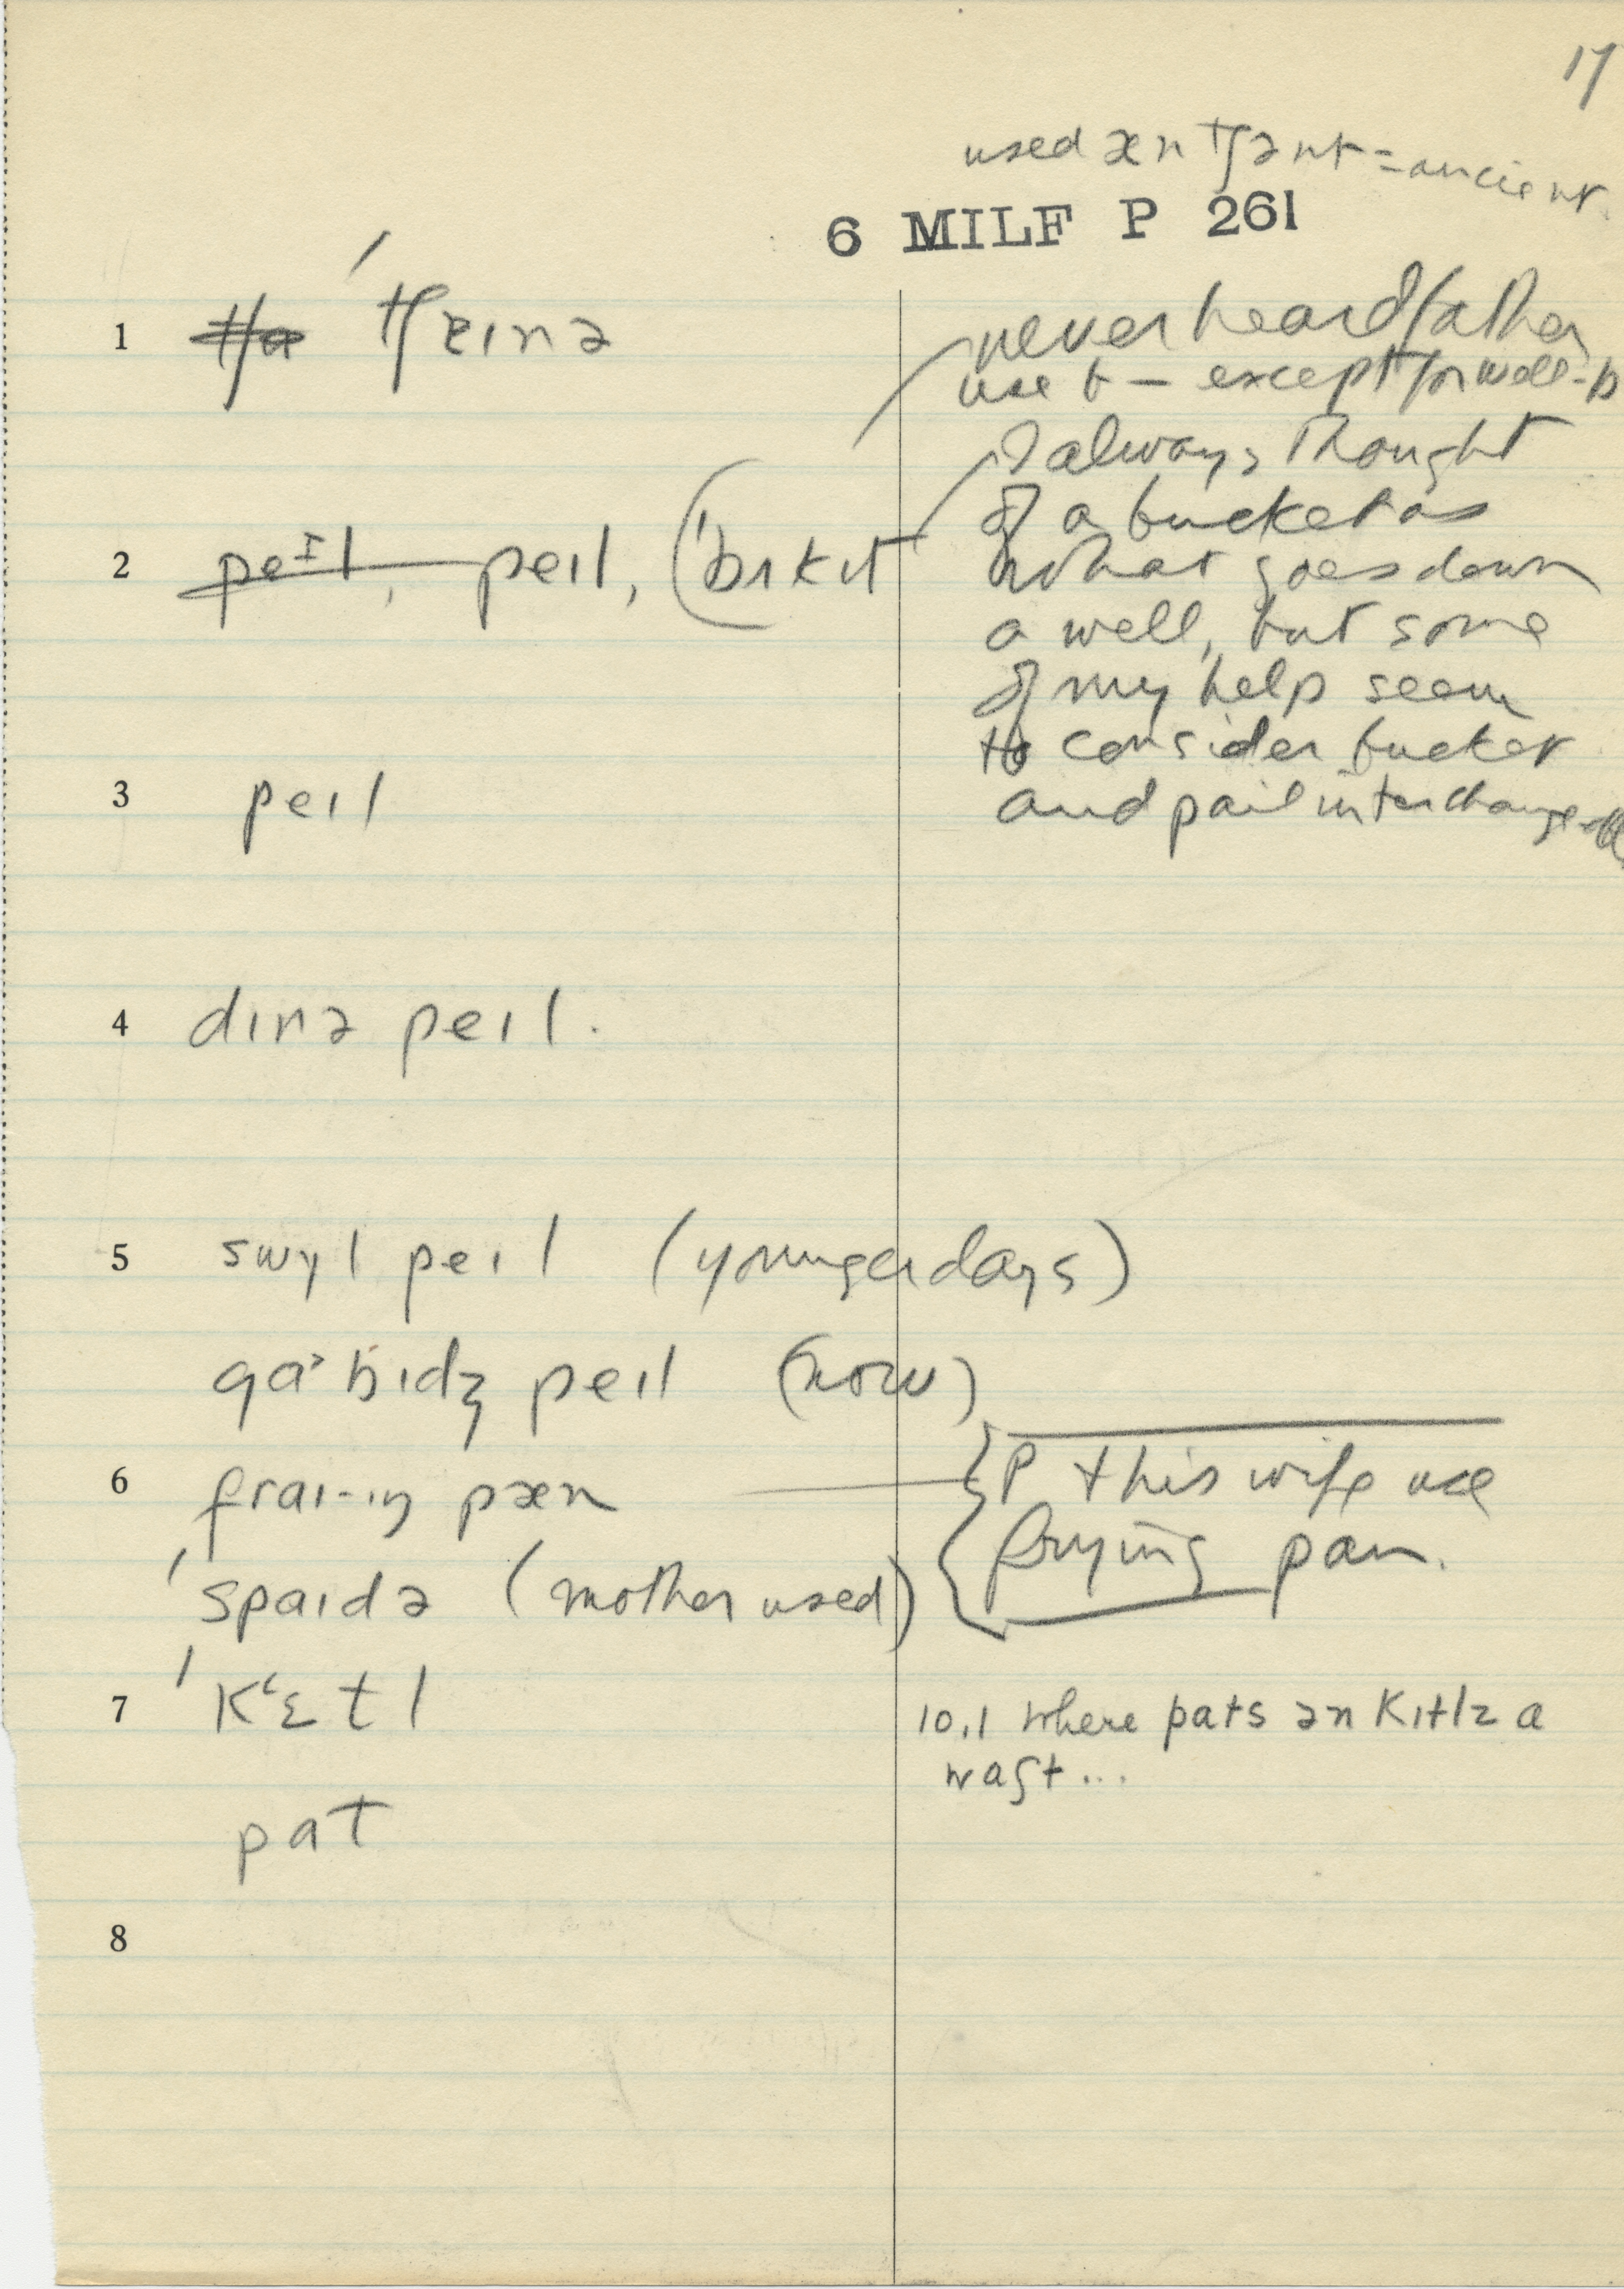 17
used æn tʃənt = ancient
6 MILF P 261
1 ˈtʃeɪnə
never heard father
use b — except for well-b
I always thought
of a bucket as
2 peɪl, peɪl, (ˈbʌkɪt
what goes down
a well, but some
of my help seem
to consider bucket
3 peɪl
and pail interchange
4 dɪnə peɪl.
5 swɪl peɪl (younger days)
gaˑbɪdʒ peɪl (now)
6 fraɪ-ɪŋ pæn
P this wife use
frying pan.
ˈspaɪdə (mother used)
7 ˈkʻɛtl
10.1 where pats ən kɪtlz a
waʃt...
pat
8